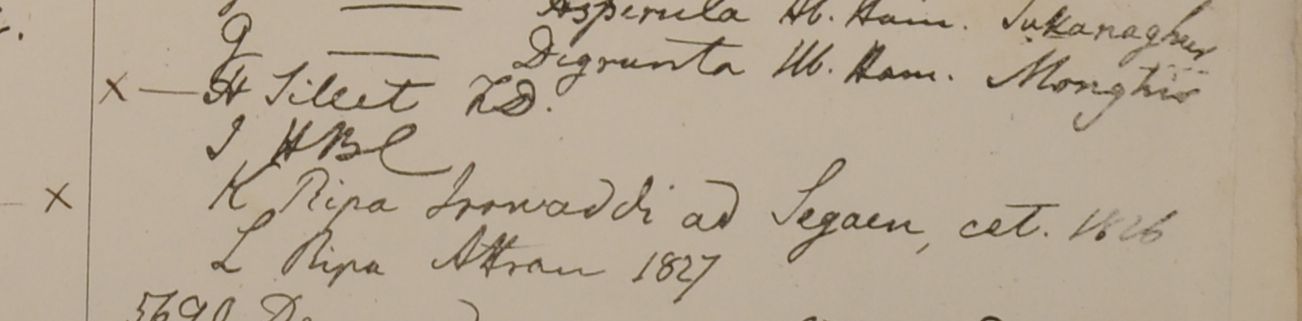 —— Asperula Hb. Ham. Sukanaghur
G —— Digrunta Hb. Ham. Monghir
× — H Sillet FD.
I HBC
× K Ripa Irowaddi ad Segaen, cet. 1826
L Ripa Attran 1827